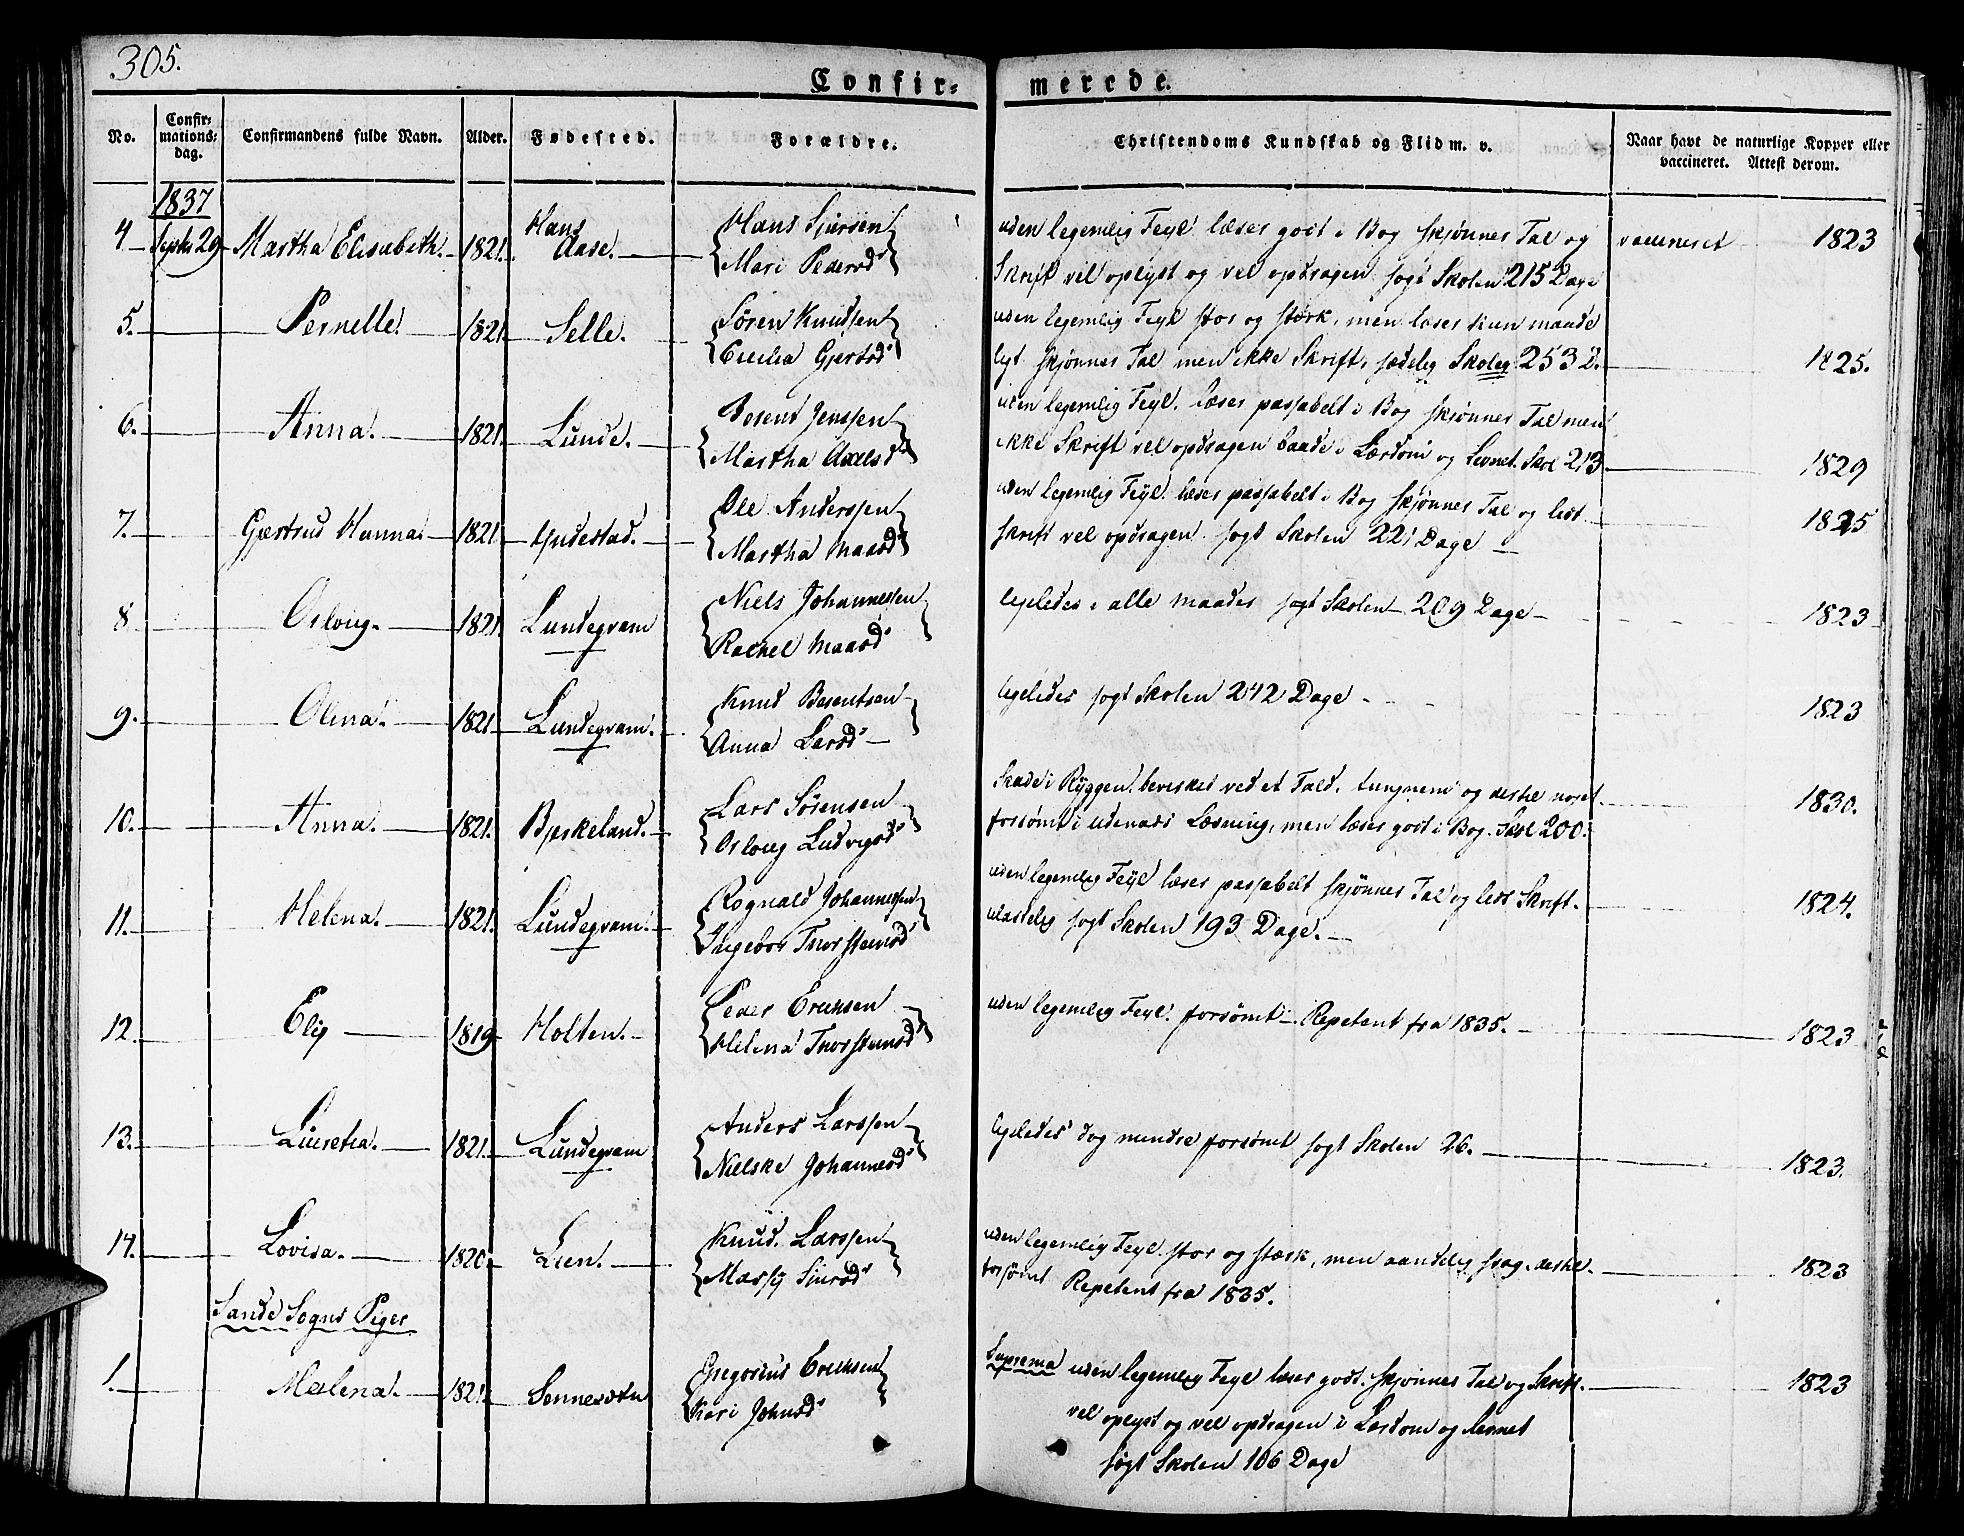 305.
Confir-
merede.
No.
Confir-
mations-
dag.
Confirmandens fulde Navn.
Alder.
Fødested.
Forældre.
Christendoms Kundskab og Flid m. v.
Naar havt de naturlige Kopper eller
vaccineret. Attest derom.
1837
4 Septbr 29 Martha Elisabeth. 1821. Hans Aase. Hans Sjursen
Mari Pedersd
uden legemlig Feyl læser godt i Bog skjønner Tal og vaccineret 1823
Skrift vel oplyst og vel opdragen søgt Skolen 215 Dage
5. Pernelle 1821 Selle. Søren Knudsen
Cecilia Gjertsd
uden legemlig Feyl stor og stærk, men læser kun maade
ligt skjønner Tal men ikke Skrift, sædelig Skoleg 253 D. 1825.
6. Anna. 1821. Lunde. Jenssen
Martha Axelsd
uden legemlig Feyl. læser passabelt i Bog skjønner Tal men
ikke Skrift vel opdragen baade i Lærdom og Levnet. Skol 213 1829
7. Gjertrud Hanna 1821. Gudestad. Ole Anderssen
Martha Maasd
uden legemlig Feyl. læser passabelt i Bog skjønner Tal og lidt
skrift vel opdragen. søgt Skolen 221 Dage 1825
8 Oslaug. 1821. Lundegram Niels Johannessen
Rachel Maasd
ligeledes i alle Maader søgt Skolen 209 Dage 1823
9. Olena. 1821. Lundegram. Knud Berentsen
Anna Larsd
ligeledes søgt Skolen 242 Dage 1823
10. Anna. 1821. Bjerkeland. Lars Sørensen
Oslaug Ludvigsd
Skade i Ryggen bevirket ved et Fald, tungnem og destil noget 1830.
forsømt i udenads Læsning, men læser godt i Bog. Skol 200.
11. Helena. 1821. Lundegram. Rognald Johannessen
Ingebor Thorsteinsd
uden legemlig Feyl læser passabelt skjønner Tal og lidt Skrift. 1824.
ulastelig søgt Skolen 193 Dage.
12. Elig 1819 Holten. Peder Ericksen
Helena Thorsteinsd
uden legemlig Feyl. forsømt Repetent fra 1835. 1823
13. Lucretia. 1821. Lundegram Anders Larssen
Nielske Johannesd
ligeledes dog mindre forsømt søgt Skolen 26. 1823.
14. Lovisa. 1820. Lien. Knud Larssen
Massy Siursd
uden legemlig Feyl. stor og stærk, men aandelig svag. destil. 1823
forsømt Repetent fra 1835.
Sande Sogns Piger
1. Malena. 1821. Gregorius Ericksen
Kari Johnsd
Suprema uden legemlig Feyl læser godt. skjønner Tal og Skrift. 1823
vel oplyst og vel opdragen i Lærdom og Levnet
søgt Skolen 106 Dage